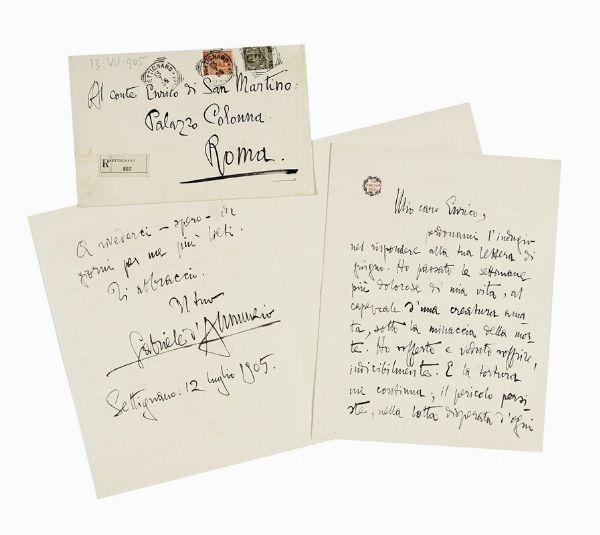 13-VII-905
SETTIGNANO
Al conte Enrico di San Martino:
Palazzo Colonna:
Roma.
R SETTIGNANO
807
A rivederci – spero – in
giorni per me più lieti.
Ti abbraccio.
Il tuo
Gabriele d'Annunzio
Settignano: 12 luglio 1905.
PER
NON DOR
MIRE
Mio caro Enrico,
perdonami l'indugio
nel rispondere alla tua lettera di
giugno. Ho passato le settimane
più dolorose di mia vita, al
capezzale d'una creatura ama
ta, sotto la minaccia della mor
te. Ho sofferto e veduto soffrire,
indicibilmente. E la tortura
mi continua; il pericolo persi
ste, nella lotta disperata d'ogni